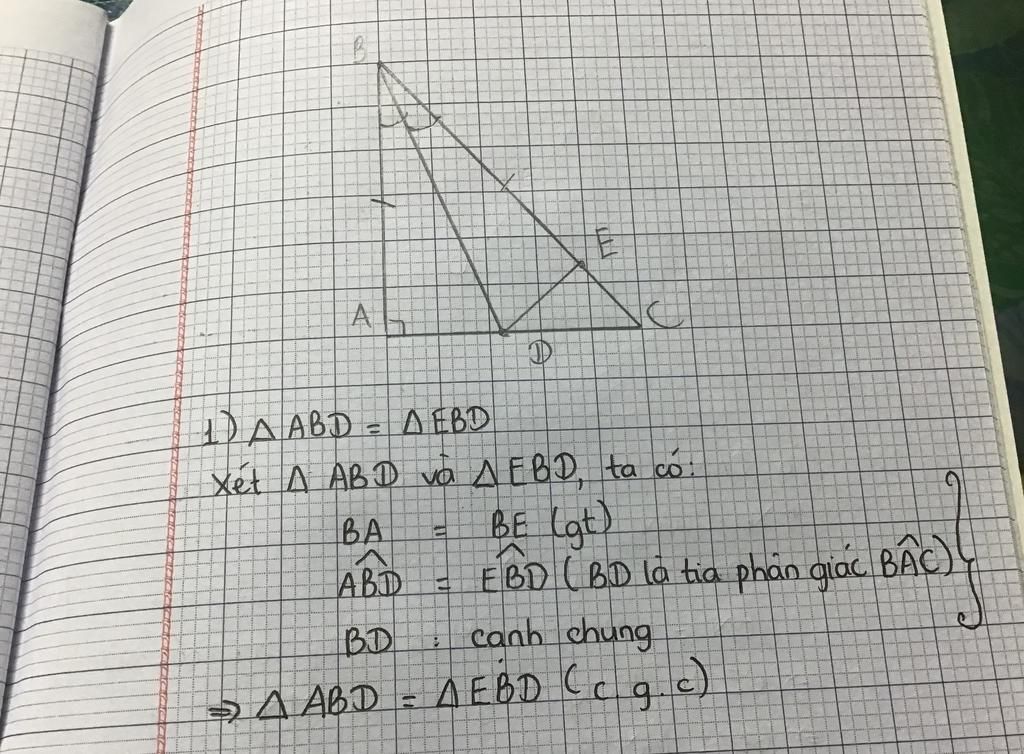 B
E
A
C
D
1) Δ ABD = Δ EBD
Xét Δ ABD và Δ EBD, ta có:
BA = BE (gt)
AB̂D = EB̂D (BD là tia phân giác BÂC)
BD : cạnh chung
⇒ Δ ABD = Δ EBD (c g. c)